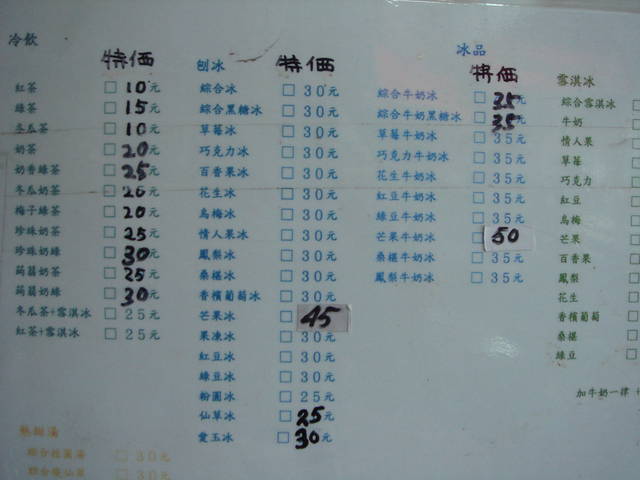 冷飲
特価
紅茶 □ 10元
綠茶 □ 15元
冬瓜茶 □ 10元
奶茶 □ 20元
奶香綠茶 □ 25元
冬瓜奶茶 □ 20元
梅子綠茶 □ 20元
珍珠奶茶 □ 25元
珍珠奶綠 □ 30元
蒟蒻奶茶 □ 25元
蒟蒻奶綠 □ 30元
冬瓜茶+雪淇冰 □ 25元
紅茶+雪淇冰 □ 25元
熱甜湯
綜合桂圓湯 □ 30元
綜合燒仙草 □ 30元
刨冰
特価
綜合冰 □ 30元
綜合黑糖冰 □ 30元
草莓冰 □ 30元
巧克力冰 □ 30元
百香果冰 □ 30元
花生冰 □ 30元
烏梅冰 □ 30元
情人果冰 □ 30元
鳳梨冰 □ 30元
桑椹冰 □ 30元
香檳葡萄冰 □ 30元
芒果冰 □ 45
果凍冰 □ 30元
紅豆冰 □ 30元
綠豆冰 □ 30元
粉圓冰 □ 25元
仙草冰 □ 25元
愛玉冰 □ 30元
冰品
特価
綜合牛奶冰 □ 35元
綜合牛奶黑糖冰 □ 35元
草莓牛奶冰 □ 35元
巧克力牛奶冰 □ 35元
花生牛奶冰 □ 35元
紅豆牛奶冰 □ 35元
綠豆牛奶冰 □ 35元
芒果牛奶冰 □ 50
桑椹牛奶冰 □ 35元
鳳梨牛奶冰 □ 35元
雪淇冰
綜合雪淇冰 □
牛奶 □
情人果 □
草莓 □
巧克力 □
紅豆 □
烏梅 □
芒果 □
百香果 □
鳳梨 □
花生 □
香檳葡萄 □
桑椹 □
綠豆 □
加牛奶一律+